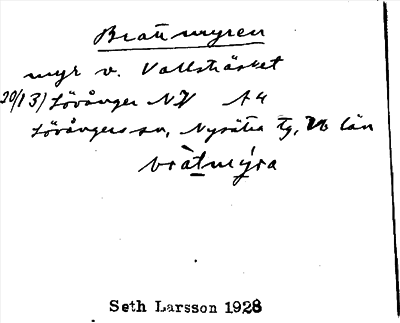 Brånmyren
myr v. Vallsträsket
20/13) Lövånger NV A4
Lövångers sn, Nysätra tg, Vb län
bràtmýra
Seth Larsson 1928